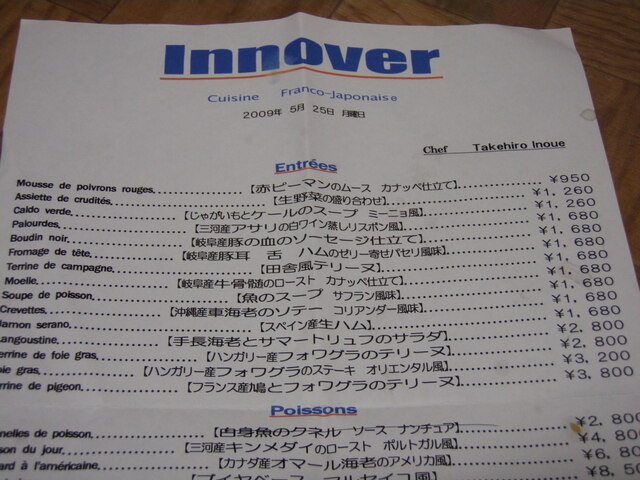 Innover
Cuisine Franco-Japonaise
2009年 5月 25日 月曜日
Chef Takehiro Inoue
Entrées
Mousse de poivrons rouges......【赤ピーマンのムース カナッペ仕立て】......¥950
Assiette de crudités......【生野菜の盛り合わせ】......¥1,260
Caldo verde......【じゃがいもとケールのスープ ミーニョ風】......¥1,260
Palourdes......【三河産アサリの白ワイン蒸しリスボン風】......¥1,680
Boudin noir......【岐阜産豚の血のソーセージ仕立て】......¥1,680
Fromage de tête......【岐阜産豚耳 舌 ハムのゼリー寄せパセリ風味】......¥1,680
Terrine de campagne......【田舎風テリーヌ】......¥1,680
Moelle......【岐阜産牛骨髄のロースト カナッペ仕立て】......¥1,680
Soupe de poisson......【魚のスープ サフラン風味】......¥1,680
Crevettes......【沖縄産車海老のソテー コリアンダー風味】......¥1,680
Jamon serano......【スペイン産生ハム】......¥1,680
angoustine......【手長海老とサマートリュフのサラダ】......¥2,800
errine de foie gras......【ハンガリー産フォワグラのテリーヌ】......¥2,800
ie gras......【ハンガリー産フォワグラのステーキ オリエンタル風】......¥3,200
rrine de pigeon......【フランス産鳩とフォワグラのテリーヌ】......¥3,800
Poissons
nelles de poisson......【白身魚のクネル ソース ナンチュア】......¥2,800
son du jour......【三河産キンメダイのロースト ポルトガル風】......¥4,80
ard à l'américaine......【カナダ産オマール海老のアメリカ風】......¥6,80
【ブイヤベース マルセイユ風】......¥8,50